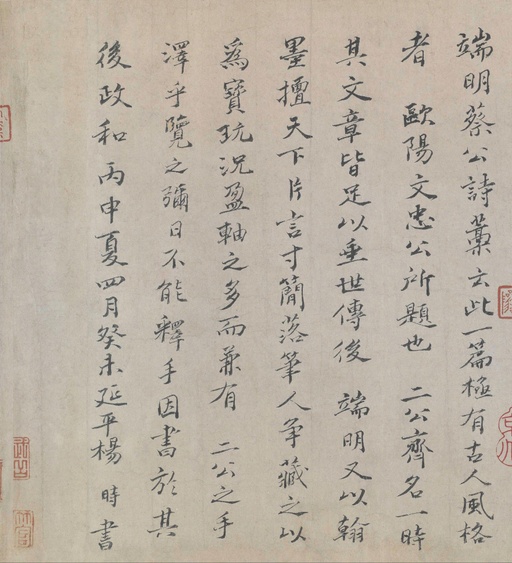 端明蔡公詩藁云此一篇極有古人風格
者　歐陽文忠公所題也　二公齊名一時
其文章皆足以垂世傳後　端明又以翰
墨擅天下片言寸簡落筆人爭藏之以
為寶玩況盈軸之多而兼有　二公之手
澤乎覽之彌日不能釋手因書於其
後政和丙申夏四月癸未延平楊　時書